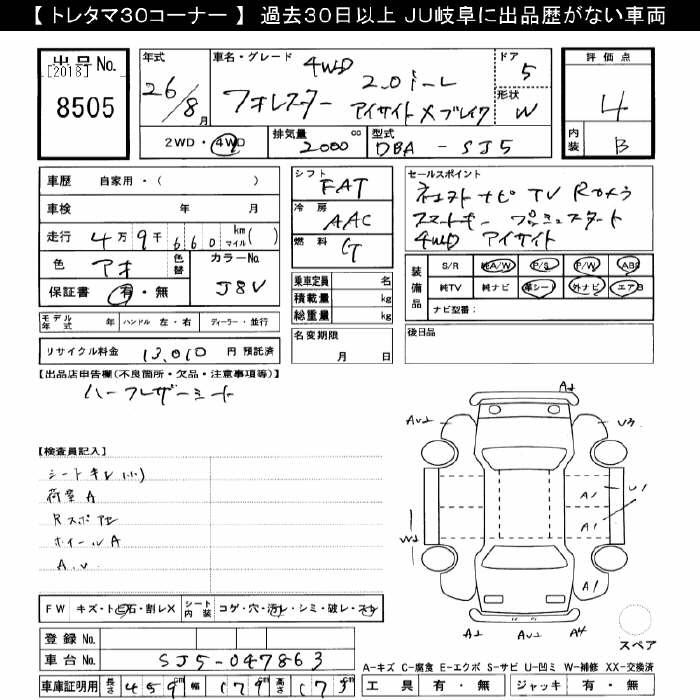 【トレタマ30コーナー】 過去30日以上 JU岐阜に出品歴がない車両
出品No.
[2018]
8505
年式
26/8月
車名・グレード
4WD
2.0i-L
フォレスター アイサイト Xブレイク
ドア
5
形状
W
評価点
4
内装
B
2WD・4WD
排気量 cc
2000
型式
DBA - SJ5
車歴 自家用・( )
車検 年 月
走行 4万9千660 km マイル( )
色 アオ 色替
カラーNo.
J8V
保証書 有・無
モデル年式 年 ハンドル 左・右 ディーラー・並行
リサイクル料金 13,010 円 預託済
シフト
FAT
冷房
AAC
燃料
G
乗車定員 名
積載量 kg
総重量 kg
名変期限
月 日
セールスポイント
ナビ TV Rカメラ
スマートキー プッシュスタート
4WD アイサイト
装備品
S/R 純A/W P/S P/W ABS
純TV 純ナビ 革シート 外ナビ エアB
ナビ型番:
後日品
【出品店申告欄(不良箇所・欠品・注意事項等)】
ハーフレザーシート
【検査員記入】
シートキレ(小)
荷室A
Rスポ
ホイールA
A.U
FW キズ・ト石・割レX
シート内装 コゲ・穴・汚レ・シミ・破レ・スレ
登録No.
車台No. SJ5-047863
車庫証明用 長さ 459cm 幅 179cm 高さ 173cm
A1
AU2
U3
A1
U1
A1
W2
A1
A2
AU2
A4
スペア
A-キズ C-腐食 E-エクボ S-サビ U-凹ミ W-補修 XX-交換済
工具 有・無 ジャッキ 有・無